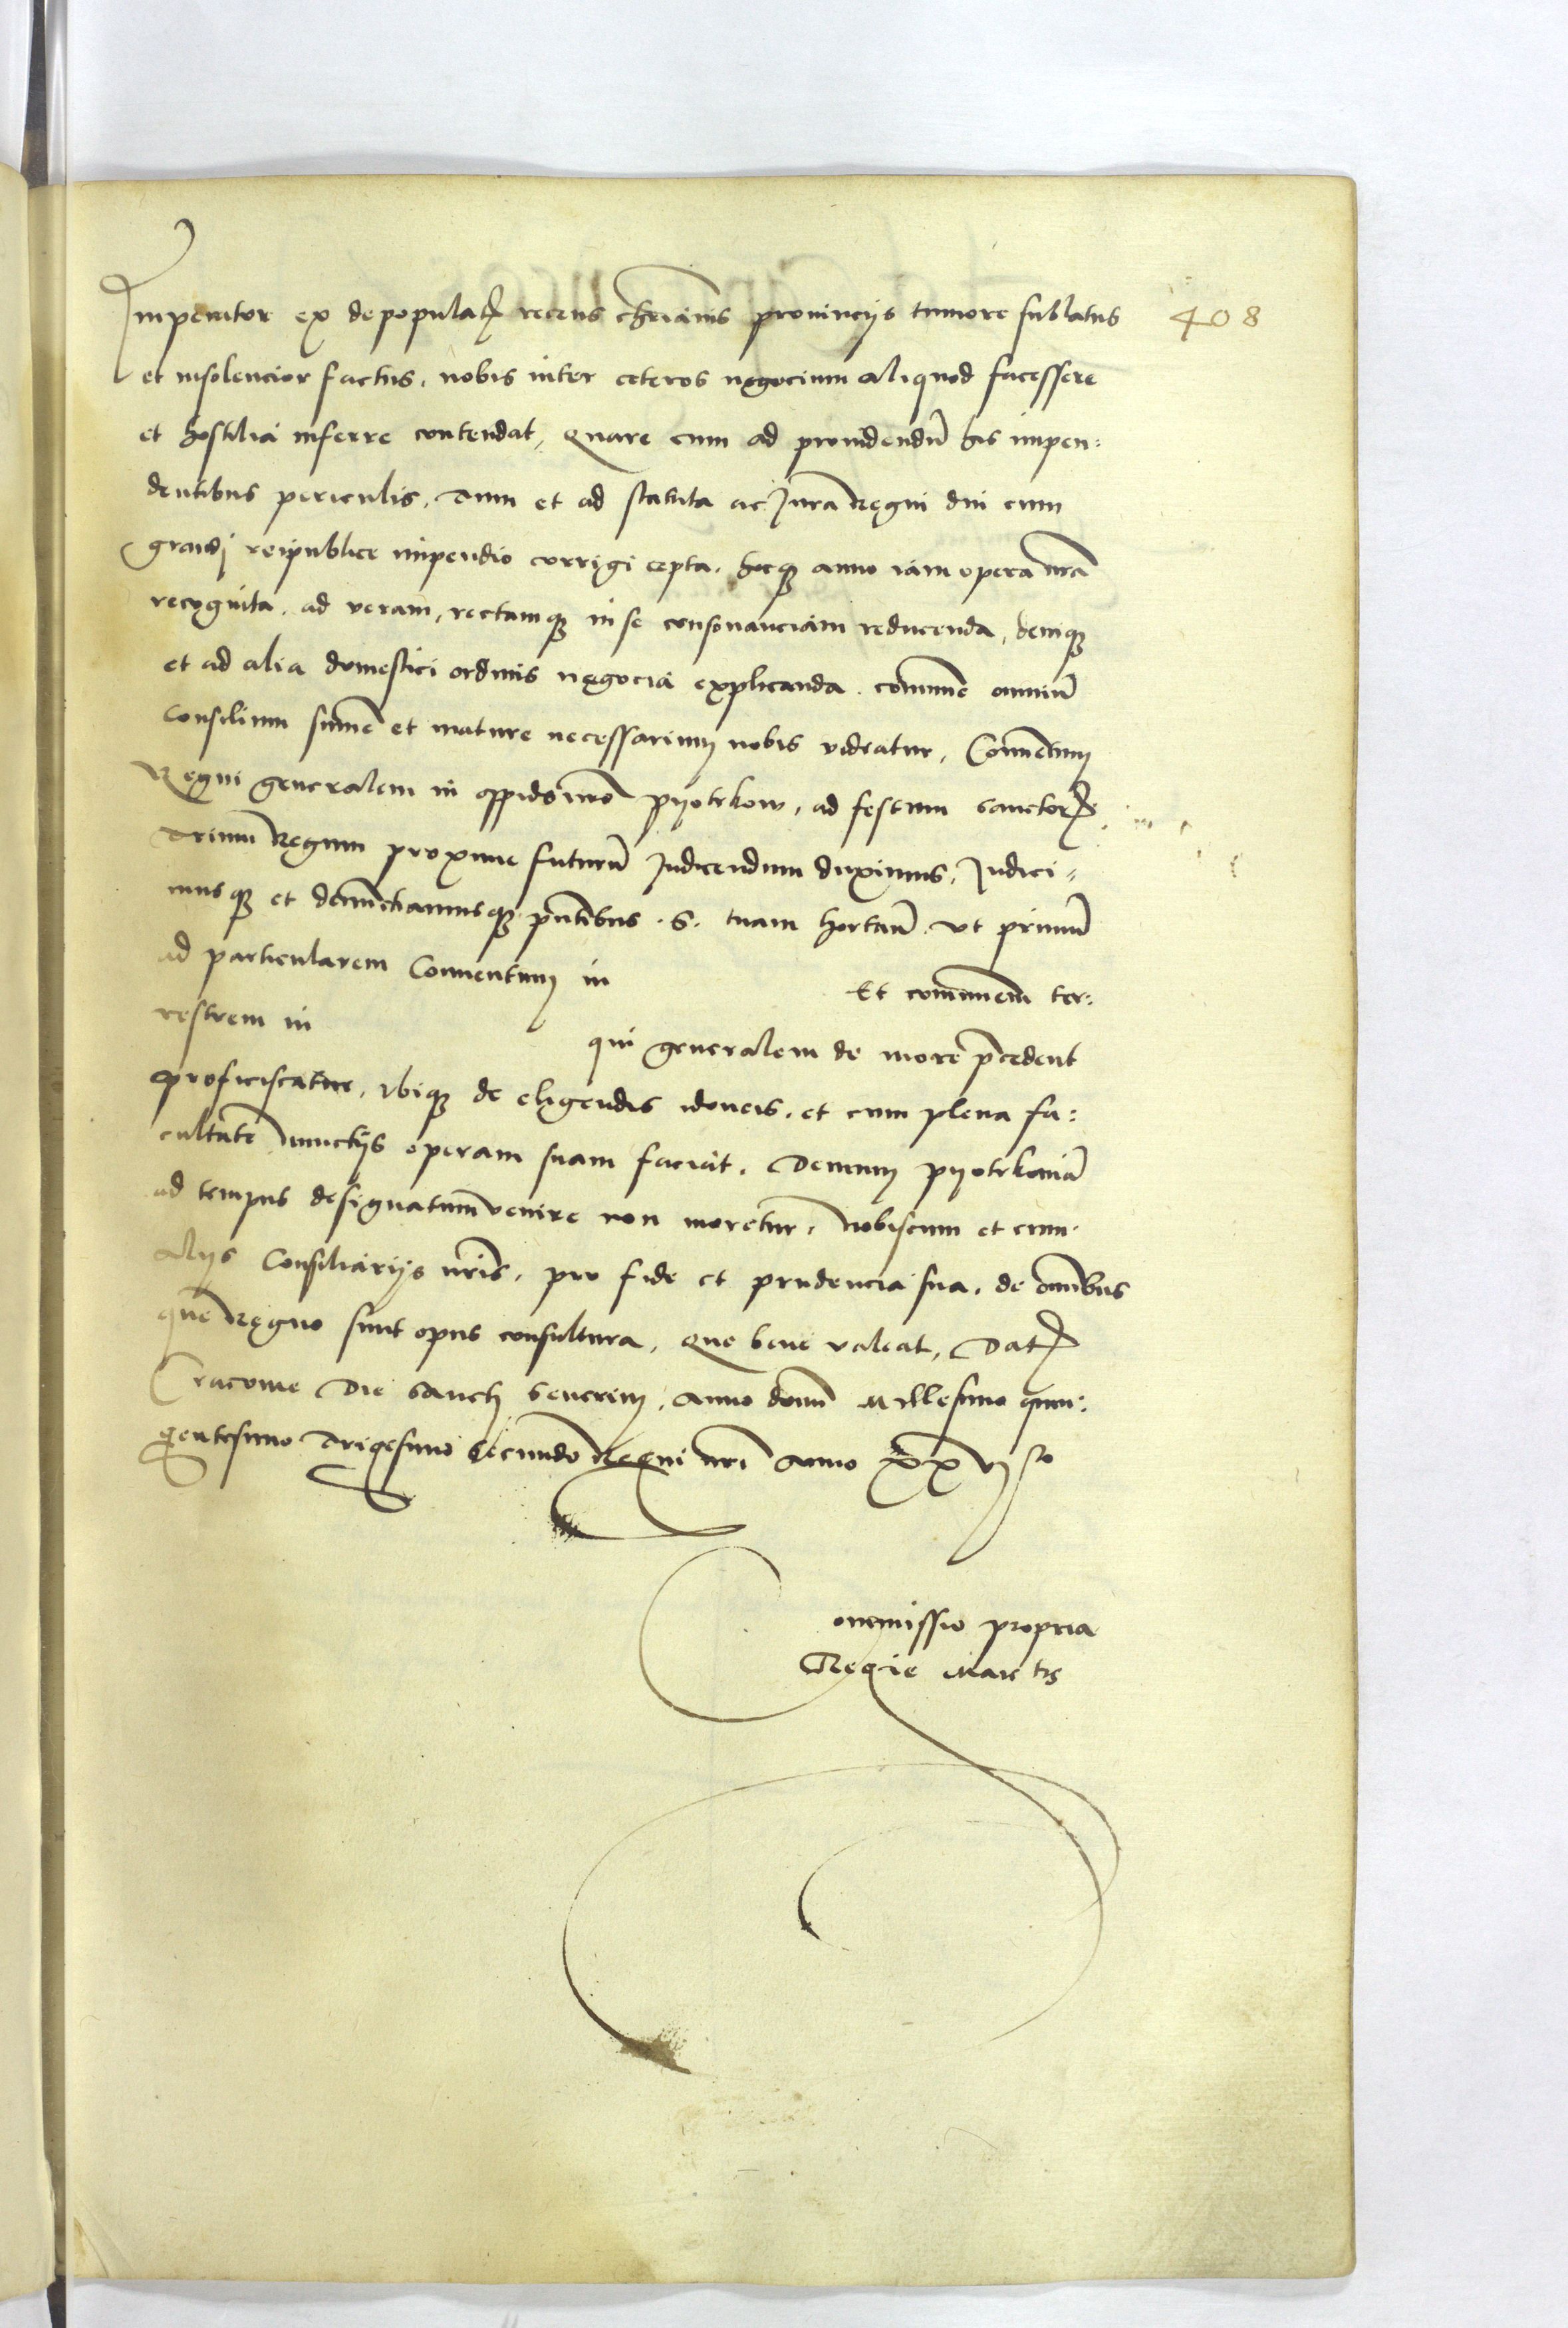 Imperator ex depopulatꝭ recens chrianis prouinciis tumore sublatus 408
et insolencior factus, nobis inter ceteros negocium aliquod facessere
et hostilia inferre contendat, Quare cum ad prouidendũ his impen:
dentibus periculis, Tum et ad statuta ac Jura Regni diu cum
grandj reipublice impendio corrigi cepta, hocqꝫ anno iam opera nrã
recognita, ad veram, rectamqꝫ in se consonanciam reducenda, deniqꝫ
et ad alia domestici ordinis negocia explicanda, comune omniũ
Consilium sumẽ et mature necessarium nobis videatur, Conuentum
Regni generalem in oppido nrõ Pyotrkow, ad festum sanctorꝭ
Trium Regum proxime futurũ Indicendum duximus, Indici=
musqꝫ et denuntiamusqꝫ pñtibus .S. tuam hortañ. vt primũ
ad particularem Conuentum in Et comunem ter:
restrem in qui generalem de more p̃cedent
proficiscatur, vbiqꝫ de eligendis idoneis, et cum plena fa:
cultate nunctiis operam suam faciat, Demum pyotrkouiã
ad tempus designatum venire non moretur, Nobiscum et cum
aliis Consiliariis nr̃is, pro fide et prudencia sua, de om̃ibus
que Regno sunt opus consultura, Que bene valeat, Datꝭ
Cracouie Die Sancti Seuerinj, Anno domĩ Millesimo quin:
gentesimo Trigesimo Secundo Regni nr̃i Anno XXVIto
Commissio propria
Regie Maiestis